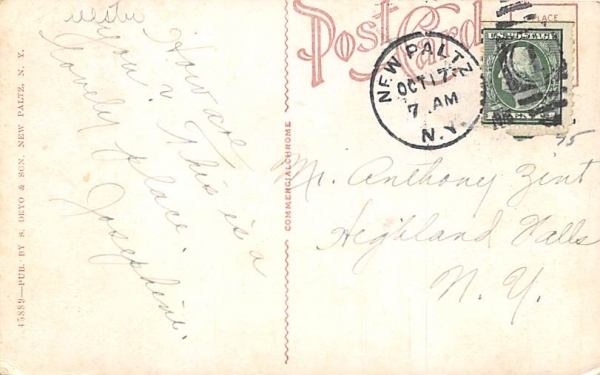 ulster
How are
you? This is a
lovely place.
Josephine.
45889—PUB. BY S. DEYO & SON, NEW PALTZ, N. Y.
COMMERCIALCHROME
Post Card
PLACE
NEW PALTZ
OCT 17
7 AM
N.Y.
U.S. POSTAGE
Mr. Anthony Zint
Highland Falls
N. Y.